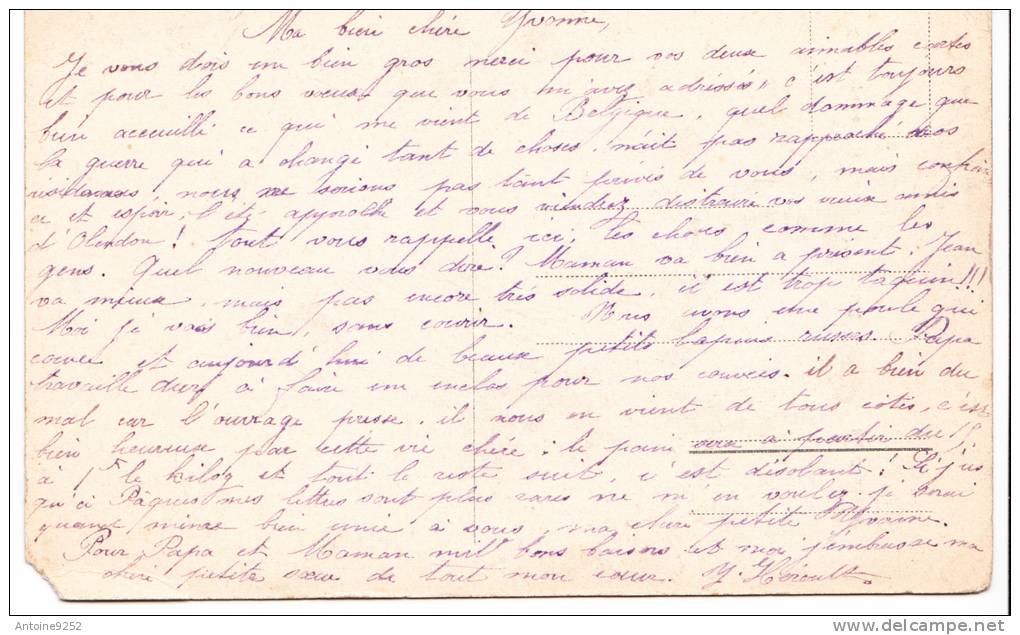 Ma bien chère Yvonne,
Je vous dois un bien gros merci pour vos deux aimables cartes
et pour les bons vœux que vous m'avez adressés, c'est toujours
bien accueilli ce qui me vient de Belgique, quel dommage que
la guerre qui a changé tant de choses n'ait pas rapproché nos
résidences nous ne serions pas tant privés de vous, mais confian
ce et espoir, l'été approche et vous viendrez distraire vos vieux amis
d'Olendon ! tout vous rappelle ici, les choses comme les
gens. Quel nouveau vous dire ? Maman va bien à présent, Jean
va mieux, mais pas encore très solide, il est trop taquin !!!
Moi je vais bien, sans courir. Nous avons une poule qui
couve et aujourd'hui de beaux petits lapins russes. Papa
travaille dur à faire un enclos pour nos couvées. il a bien du
mal car l'ouvrage presse, il nous en vient de tous côtés, c'est
bien heureux par cette vie chère : le pain sera à partir du 15
à 1f le kilog et tout le reste suit, c'est désolant ! Si j'us
qu'à Pâques mes lettres sont plus rares ne m'en voulez je serai
quand même bien unie à vous, ma chère petite Yvonne.
Pour Papa et Maman mille bons baisers et moi j'embrasse ma
chère petite sœur de tout mon cœur. Y. Hérault.
Antoine9252
delcampe.net